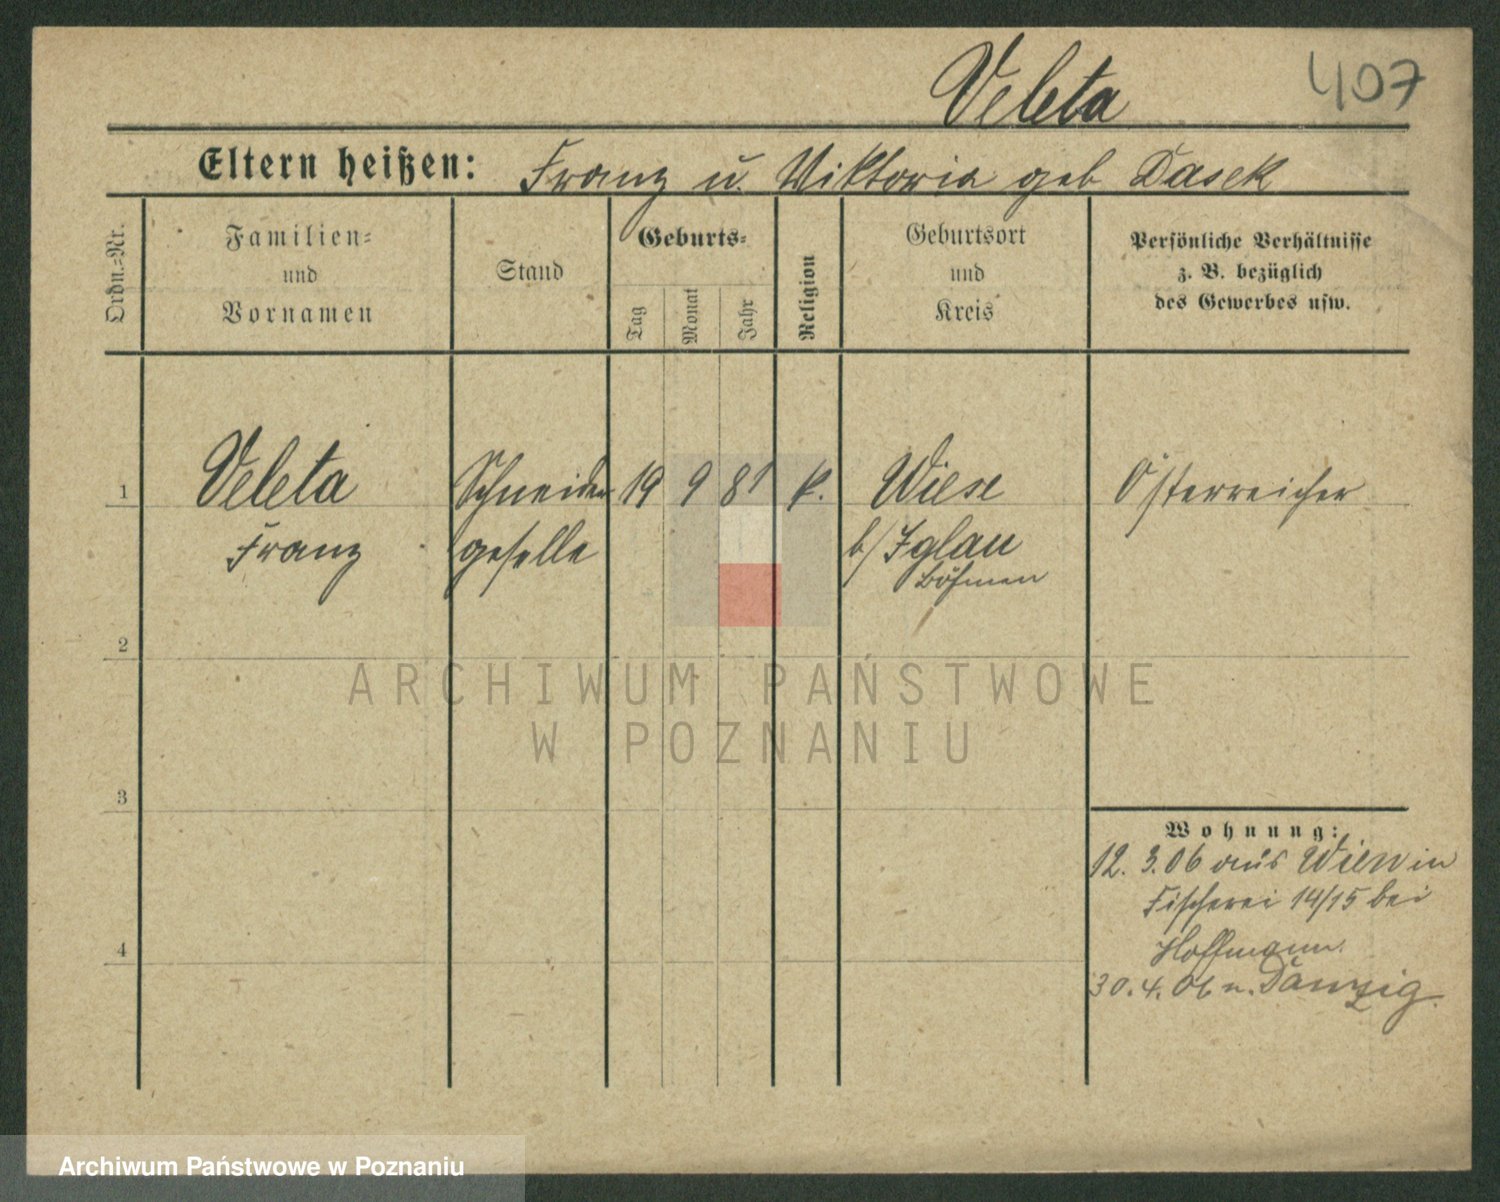 Veleta 407
Eltern heißen: Franz u. Viktoria geb Dasek
Ordn.=Nr.
Familien=
und
Vornamen
Stand
Geburts=
Tag
Monat
Jahr
Religion
Geburtsort
und
Kreis
Persönliche Verhältnisse
z. B. bezüglich
des Gewerbes usw.
1 Veleta Schneider 19 9 81 k. Wiese Österreicher
Franz geselle b/ Iglau
Böhmen
2
ARCHIWUM PAŃSTWOWE
W POZNANIU
3
Wohnung:
12. 3. 06 aus Wien in
Fischerei 14/15 bei
Hoffmann.
4
30. 4. 06 n. Danzig.
Archiwum Państwowe w Poznaniu